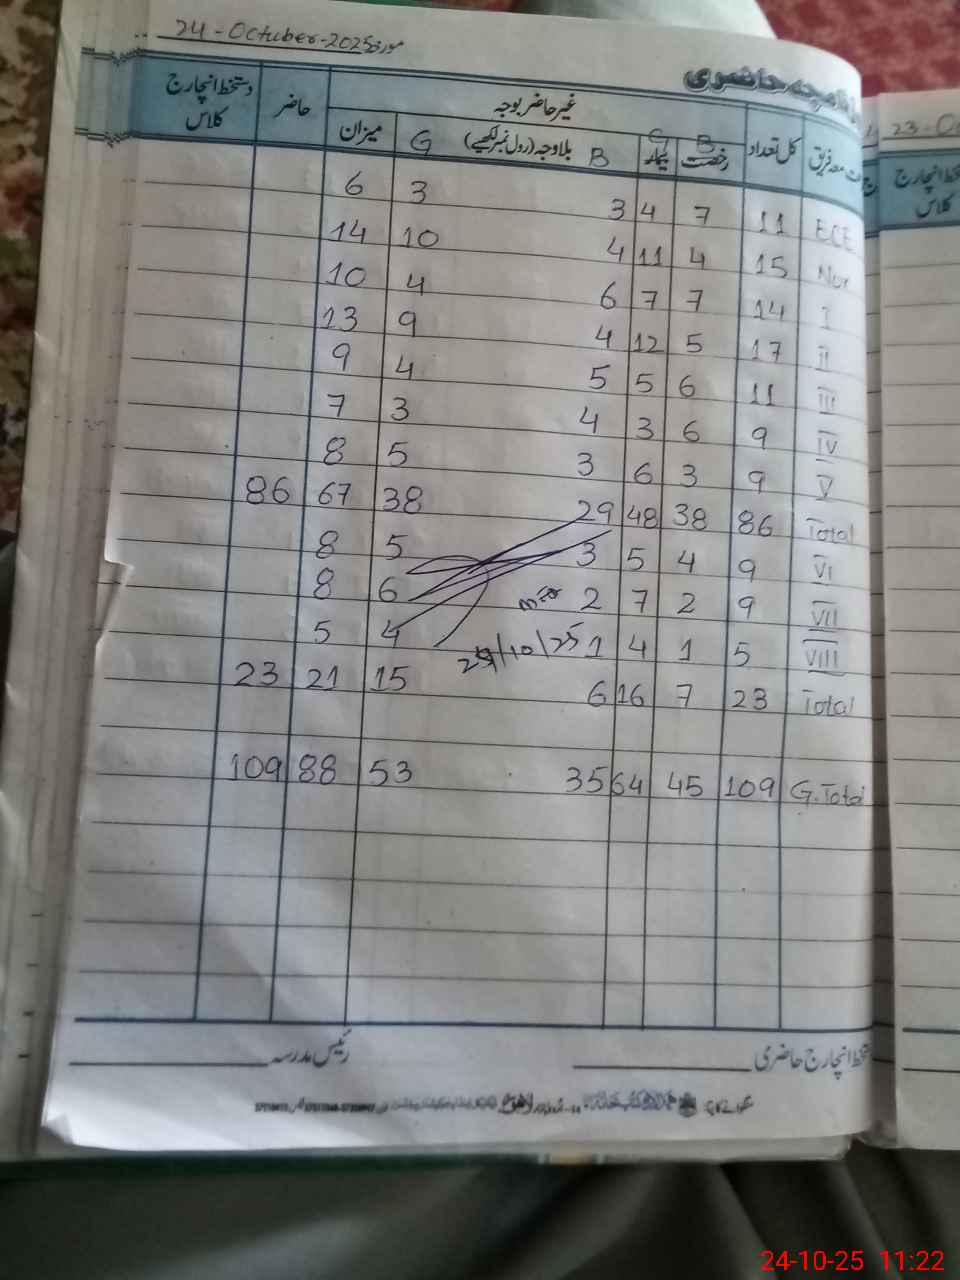 مورخہ 24-October-2025
روزنامچہ حاضری
معہ فریق کل تعداد رخصت B بیمار G غیر حاضر بوجہ بلاوجہ (رول نمبر لکھیے) B G میزان حاضر دستخط انچارج کلاس
ECE 11 7 4 3 3 6
Nur 15 4 11 4 10 14
I 14 7 7 6 4 10
II 17 5 12 4 9 13
III 11 6 5 5 4 9
IV 9 6 3 4 3 7
V 9 3 6 3 5 8
Total 86 38 48 29 38 67 86
VI 9 4 5 3 5 8
VII 9 2 7 2 6 8
VIII 5 1 4 1 4 5
24/10/25
Total 23 7 16 6 15 21 23
G.Total 109 45 64 35 53 88 109
دستخط انچارج حاضری
رئیس مدرسہ
23-Oc
دستخط انچارج
کلاس
24-10-25 11:22